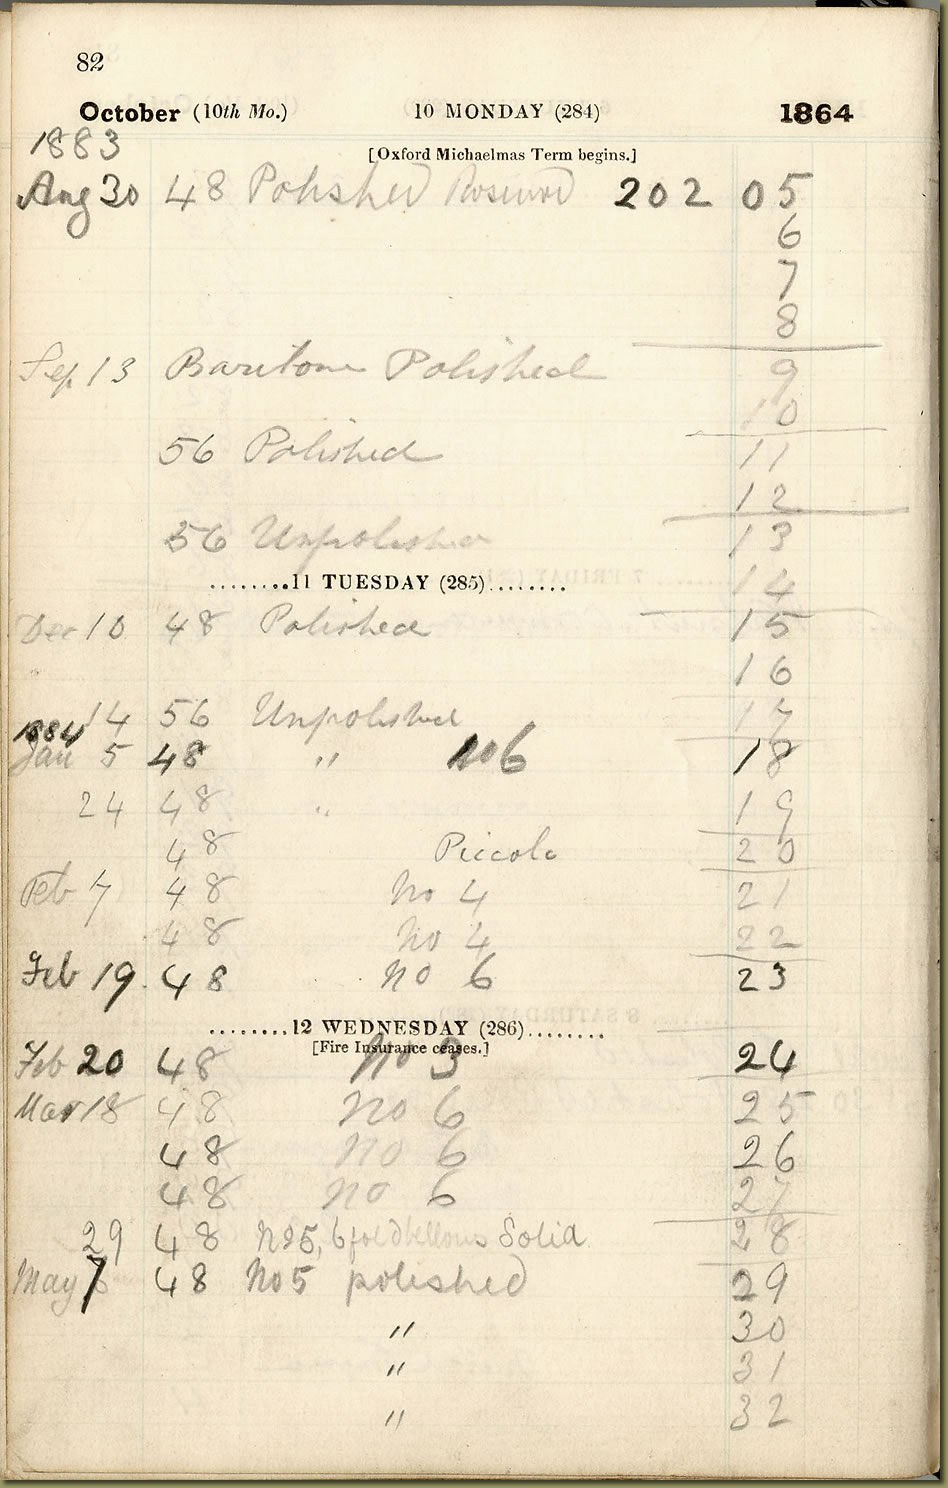 82
October (10th Mo.) 10 MONDAY (284) 1864
1883
[Oxford Michaelmas Term begins.]
Aug 30 48 Polished 202 05
6
7
8
Sep 13 Baritone Polished 9
10
56 Polished 11
12
56 Unpolished 13
........11 TUESDAY (285)........ 14
Dec 10 48 Polished 15
16
14 56 Unpolished 17
1884
Jan 5 48 " No 6 18
24 48 " 19
48 Piccolo 20
Feb 7 48 No 4 21
48 No 4 22
Feb 19 48 No 6 23
........12 WEDNESDAY (286)........
[Fire Insurance ceases.]
Feb 20 48 No 3 24
Mar 18 48 No 6 25
48 No 6 26
48 No 6 27
29 48 No 5, 6 fold bellows Solid 28
May 7 48 No 5 polished 29
" 30
" 31
" 32